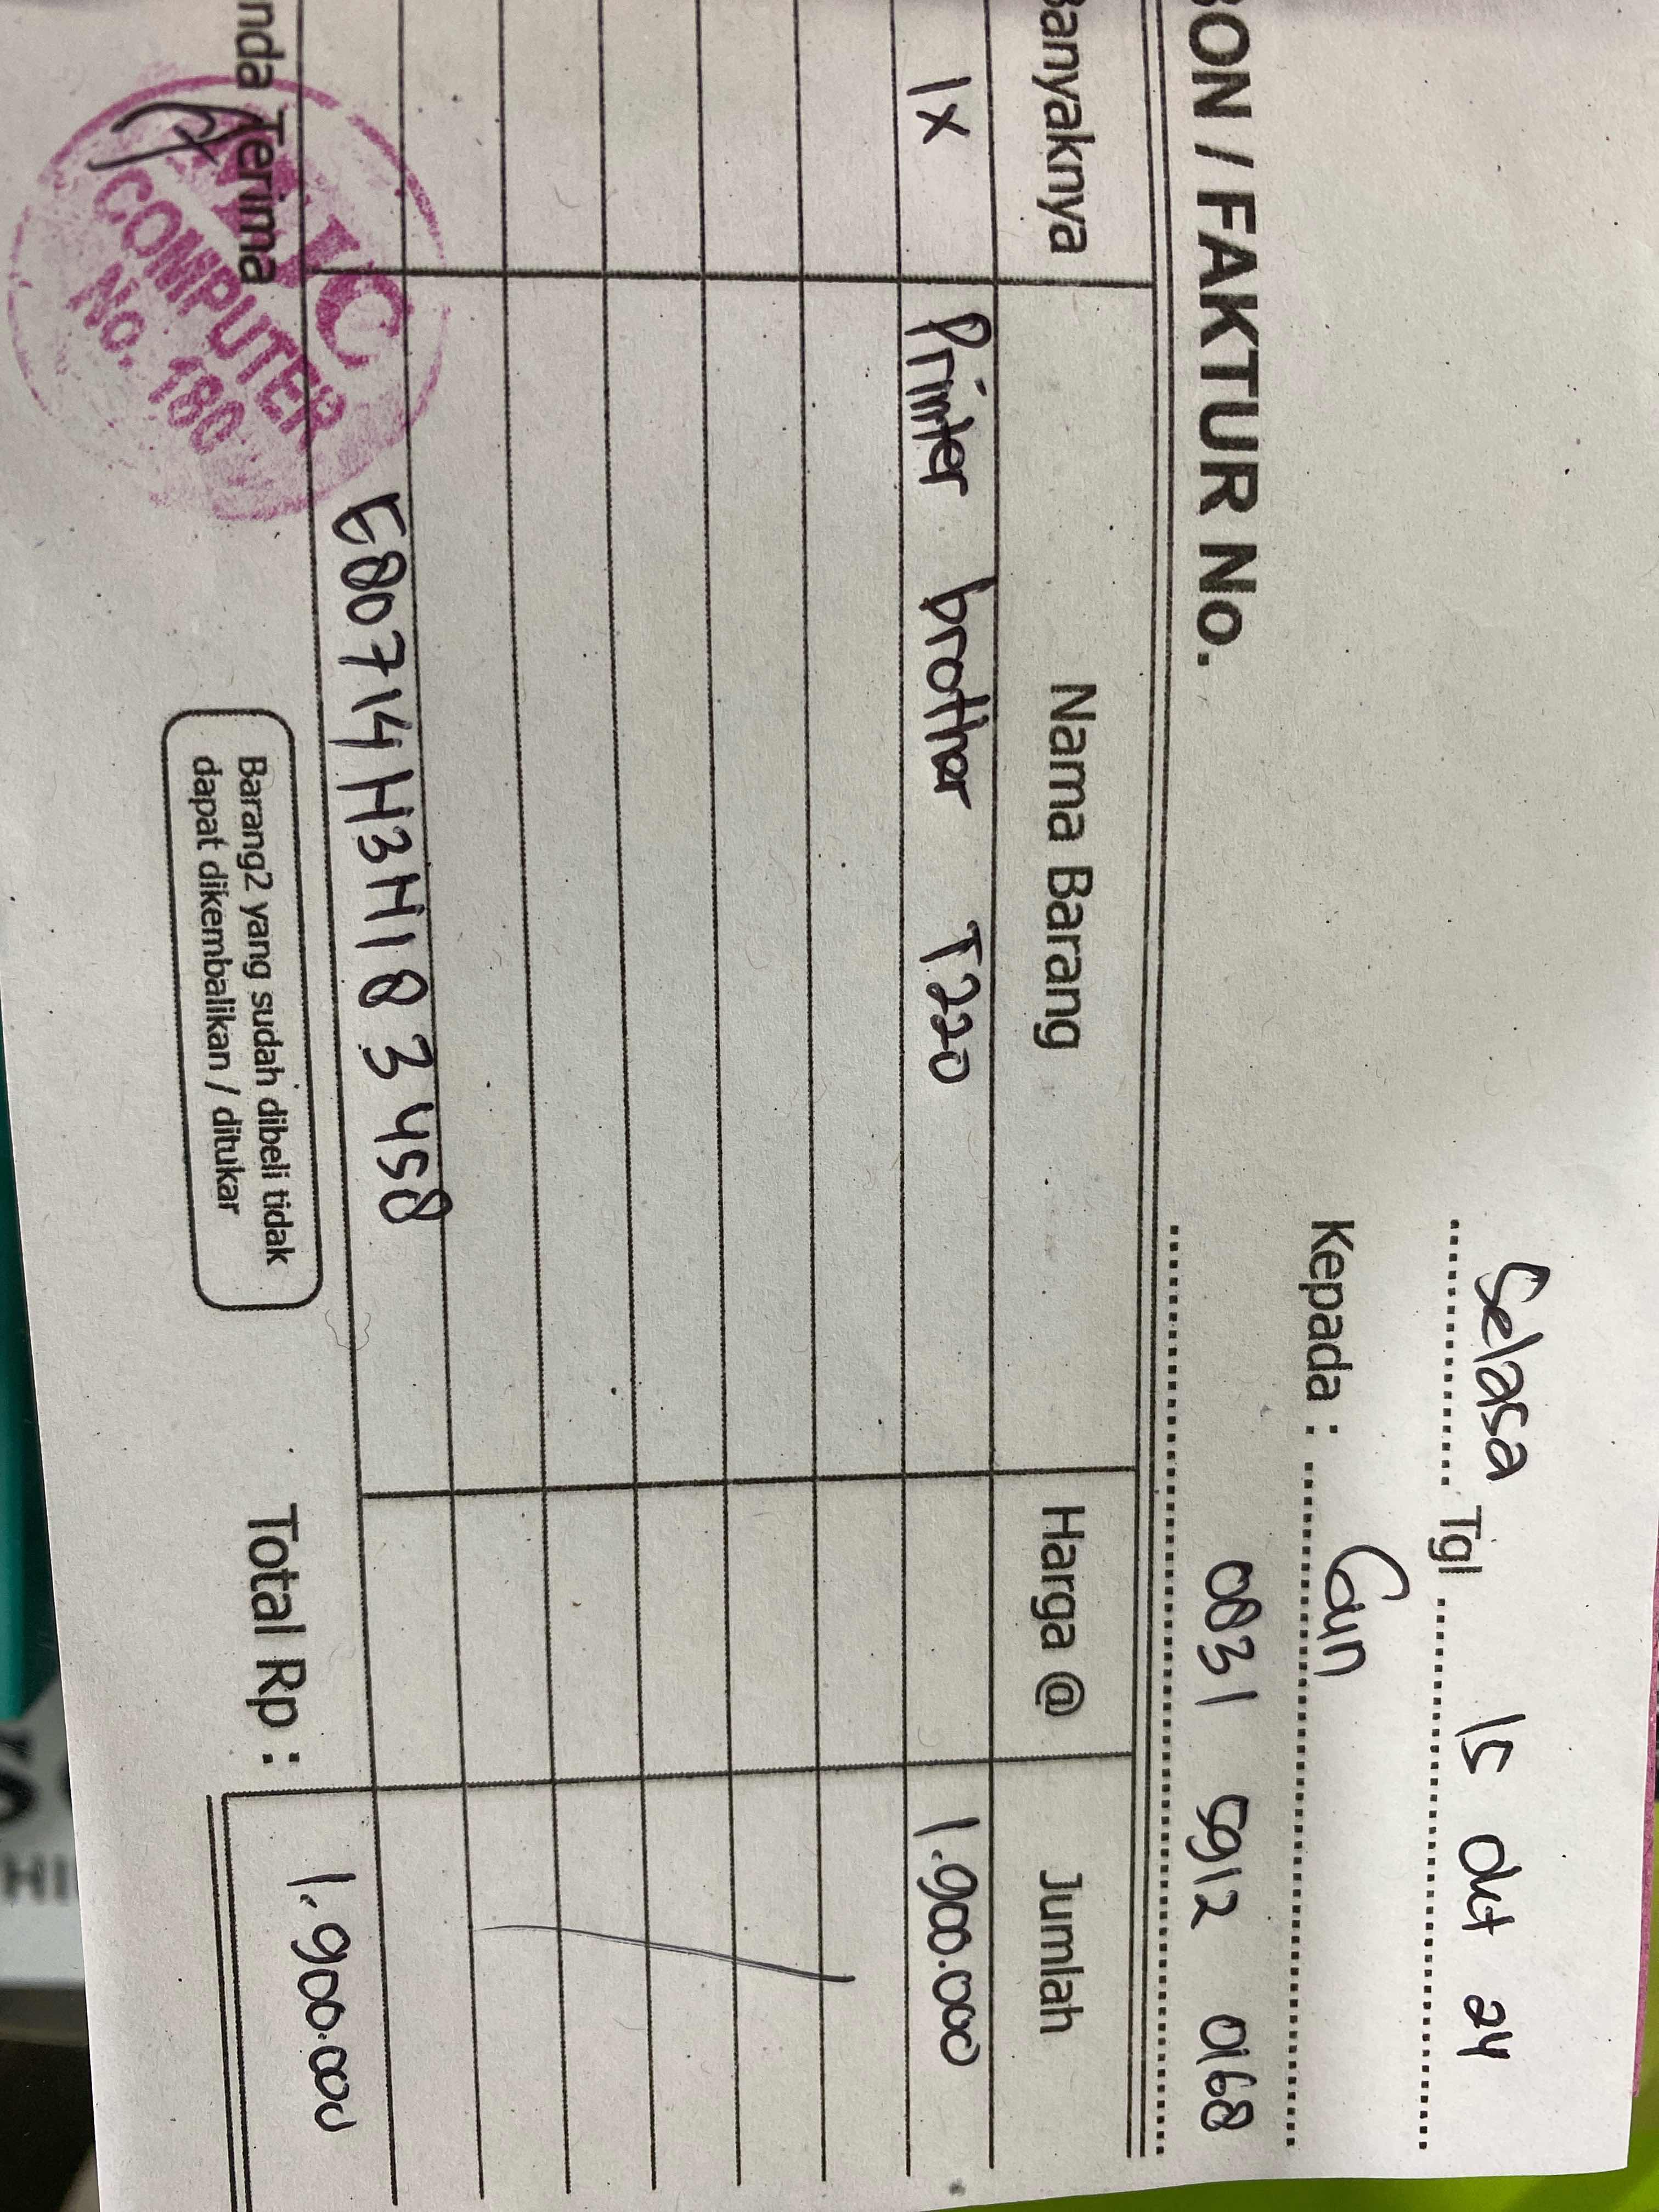 Selasa Tgl 15 Okt 24
Kepada : Cun
BON / FAKTUR No.
0831 5912 0168
Banyaknya Nama Barang Harga @ Jumlah
1x Printer brother T220 1.900.000
E80714H3H183458
Total Rp : 1,900.000
nda Terima
COMPUTER
No. 180
Barang2 yang sudah dibeli tidak
dapat dikembalikan / ditukar